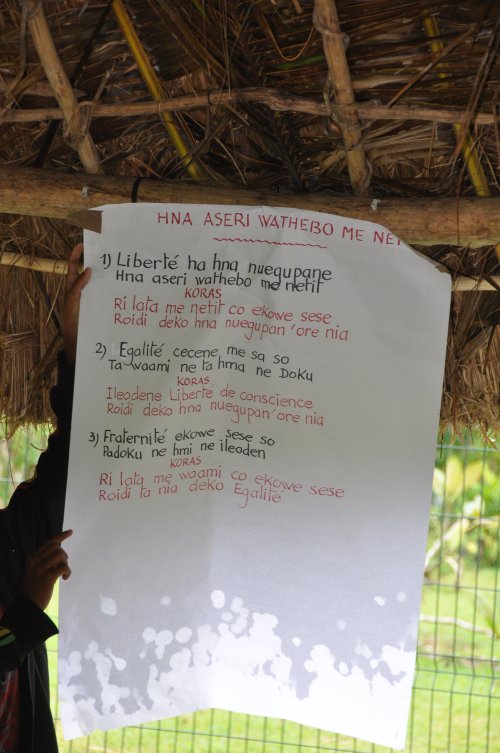 HNA ASERI WATHEBO ME NET
1) Liberté ha hna nuegupane
Hna aseri wathebo me netit
KORAS
Ri lata me netit co ekowe sese
Roidi deko hna nuegupan'ore nia
2) Egalité cecene me sa so
Ta waami ne ta hma ne Doku
KORAS
Ileodene Liberté de conscience
Roidi deko hna nuegupan'ore nia
3) Fraternité ekowe sese so
Padoku ne hmi ne ileoden
KORAS
Ri lata me waami co ekowe sese
Roidi ta nia deko Egalité